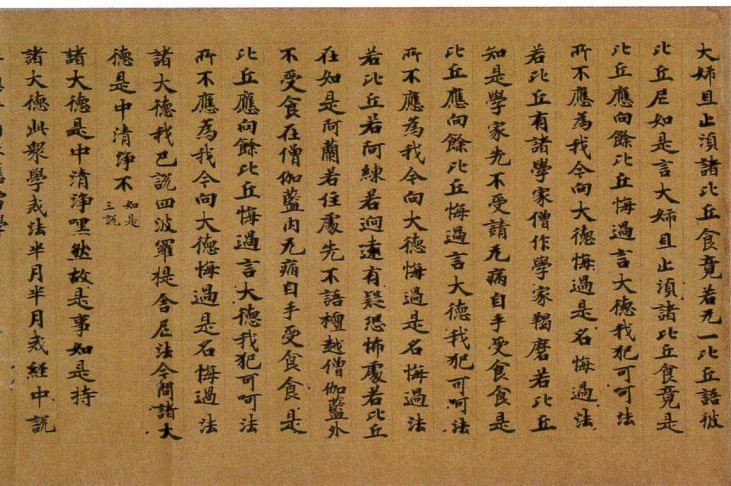 大姉且止湏諸比丘食竟若无一比丘語彼
比丘尼如是言大姉且止湏諸比丘食竟是
比丘應向餘比丘悔過言大德我犯可呵法
所不應為我今向大德悔過是名悔過法
若比丘有諸學家僧作學家羯磨若比丘
知是學家先不受請无病自手受食食是
比丘應向餘比丘悔過言大德我犯可呵法
所不應為我今向大德悔過是名悔過法
若比丘若阿練若迥遠有疑恐怖處若比丘
在如是阿蘭若住處先不語檀越僧伽藍外
不受食在僧伽藍內无病自手受食食是
比丘應向餘比丘悔過言大德我犯可呵法
所不應為我今向大德悔過是名悔過法
諸大德我已說四波羅提舍尼法今問諸大
德是中清淨不如是三說
諸大德是中清淨嘿然故是事如是持
諸大德此眾學戒法半月半月戒經中說